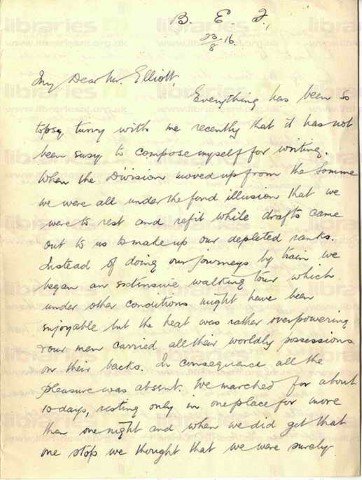 B. E. F.,
23/8.16.
My Dear Mr. Elliott
Everything has been so
topsy turvy with me recently that it has not
been easy to compose myself for writing.
When the Division moved up from the Somme
we were all under the fond illusion that we
were to rest and refit while drafts came
out to us to make up our depleted ranks.
Instead of doing our journeys by train we
began an extensive walking tour which
under other conditions might have been
enjoyable but the heat was rather overpowering
& our men carried all their worldly possessions
on their backs. In consequence all the
pleasure was absent. We marched for about
10 days, resting only in one place for more
than one night and when we did get that
one stop we thought that we were surely